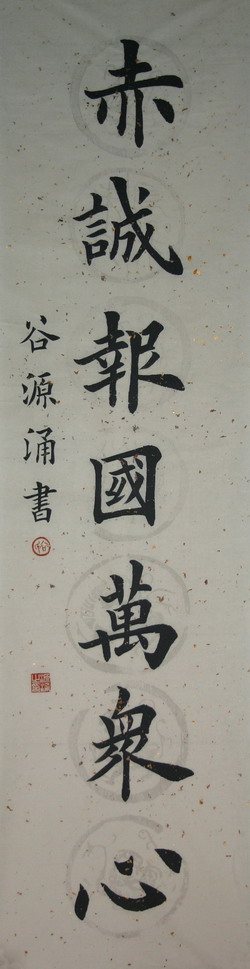 赤誠報國萬衆心
谷源涌書